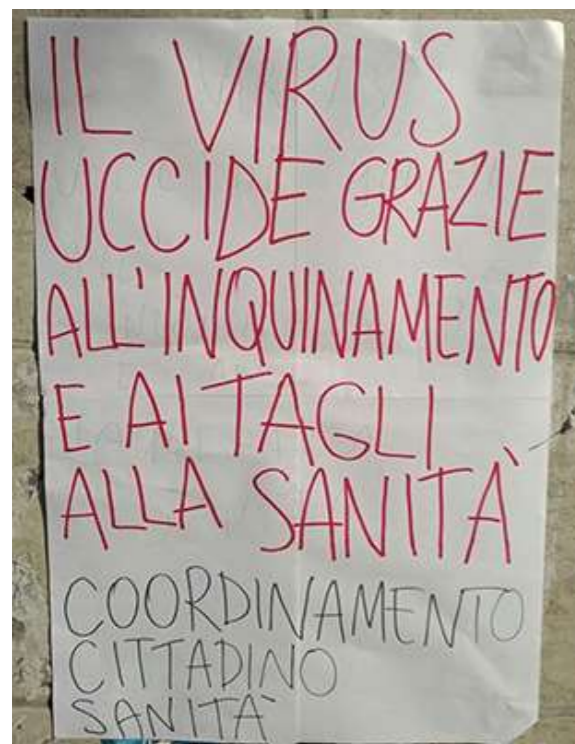 IL VIRUS
UCCIDE GRAZIE
ALL'INQUINAMENTO
E AI TAGLI
ALLA SANITÀ
COORDINAMENTO
CITTADINO
SANITÀ